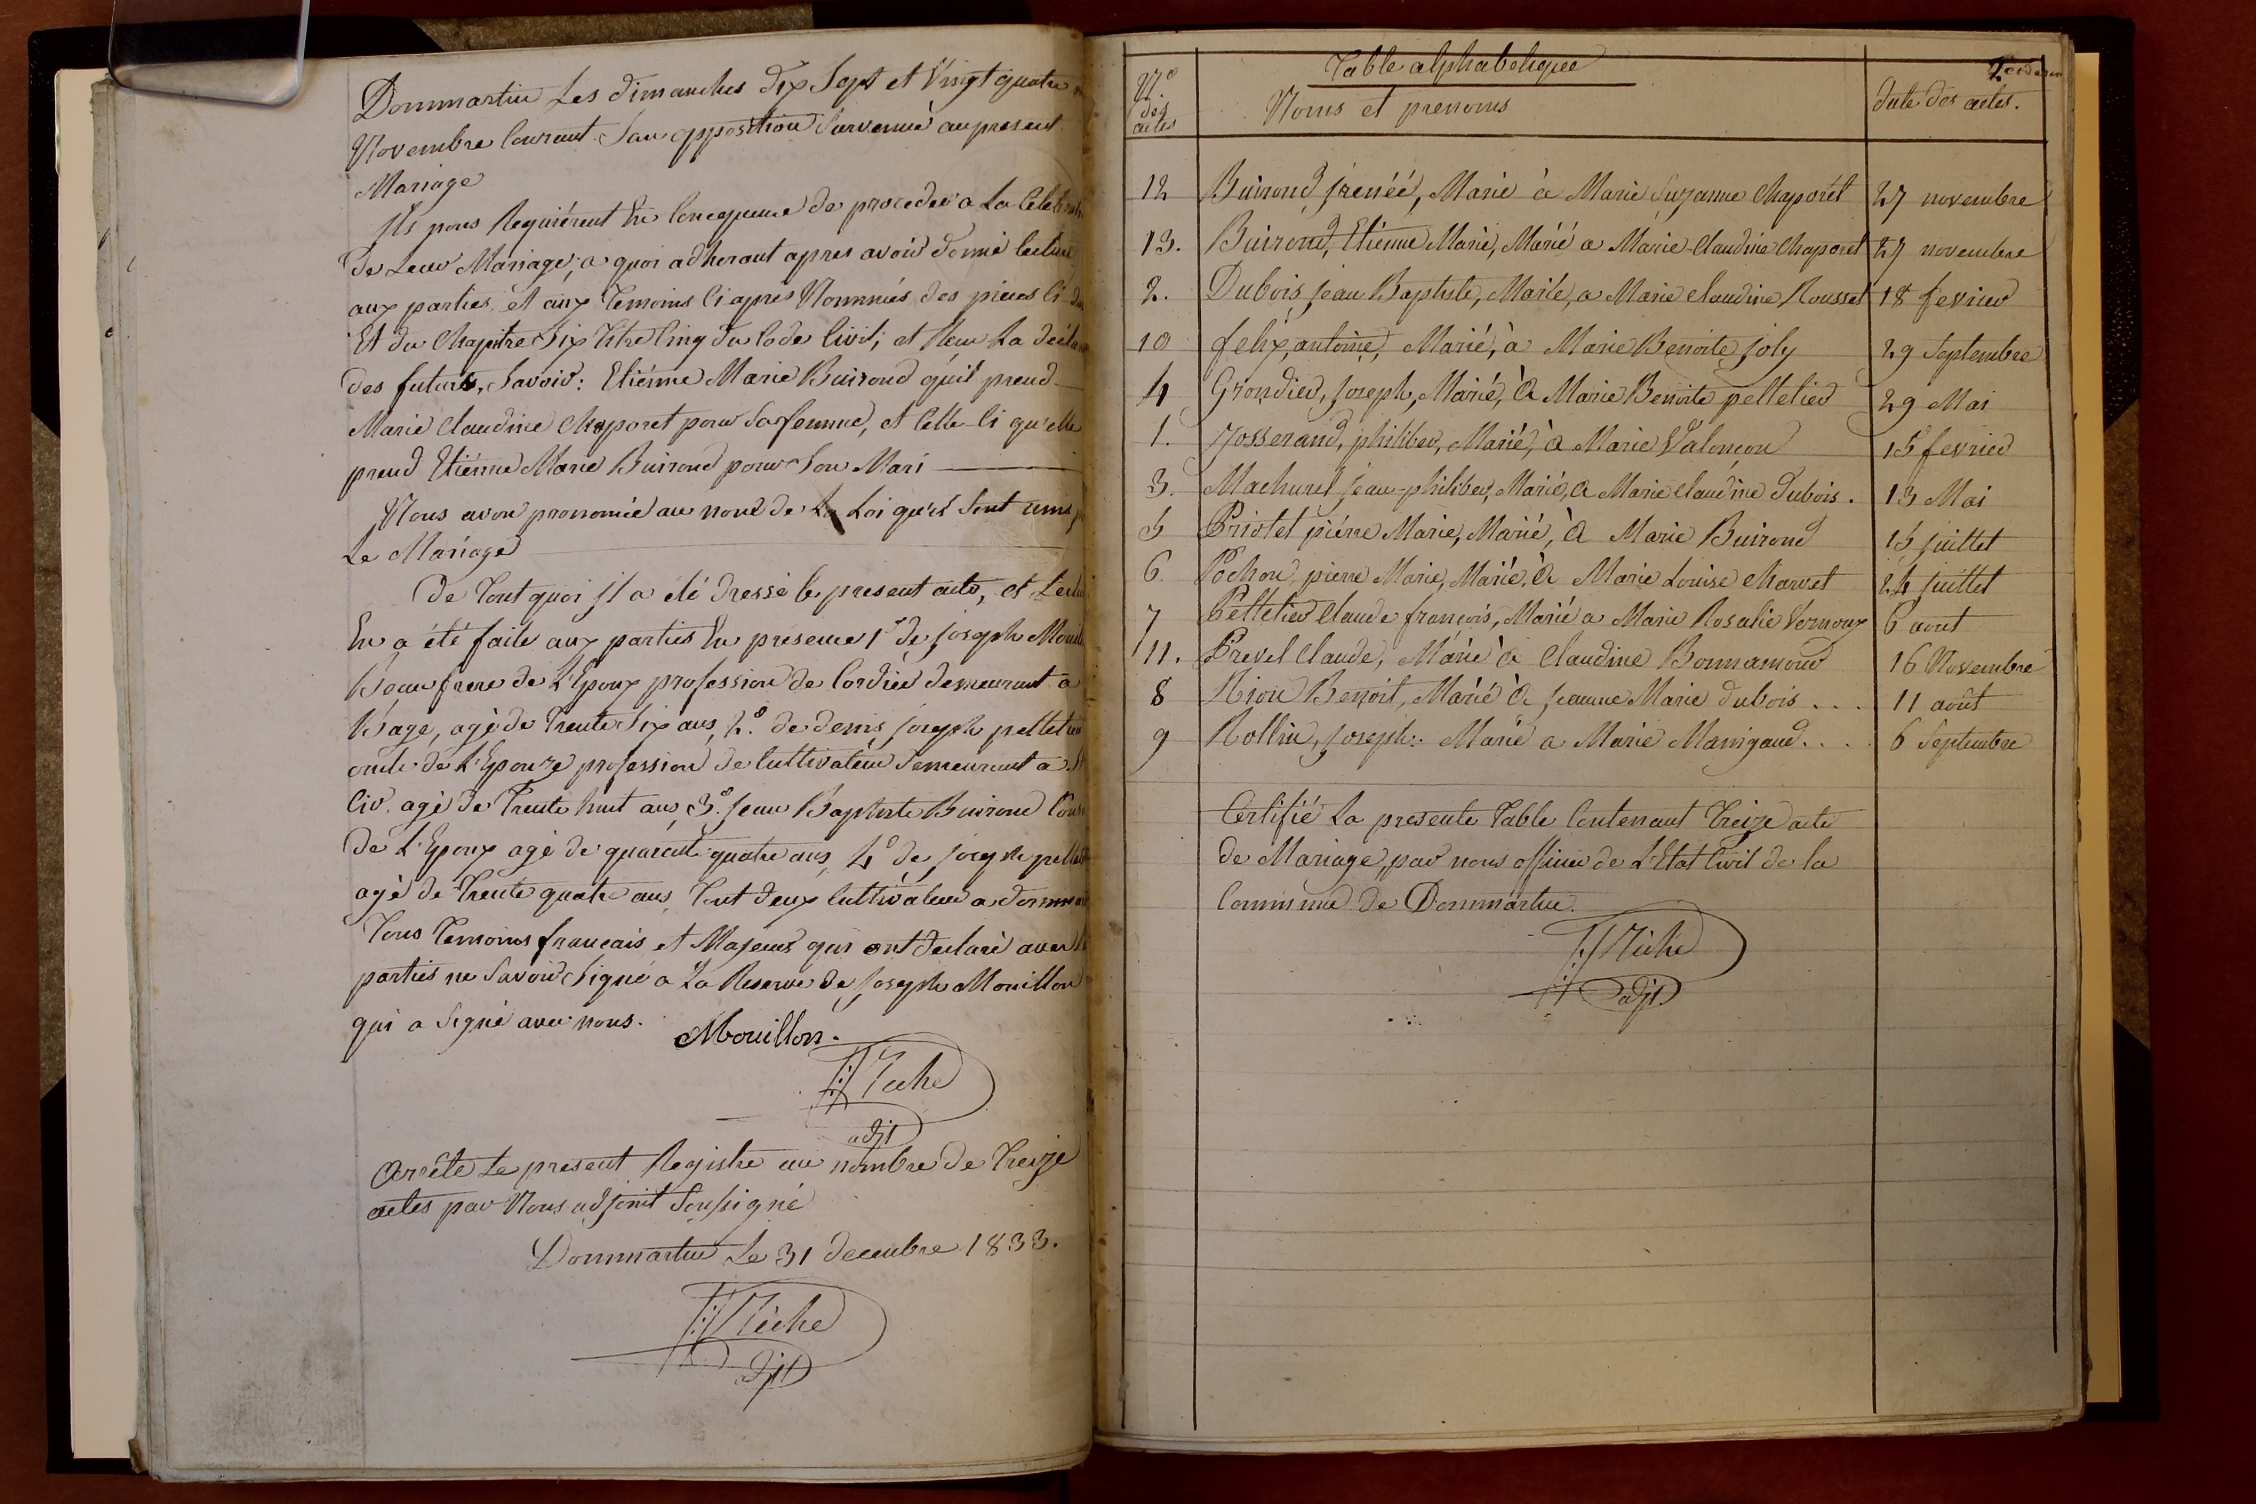 Dommartin Les dimanches dix Sept et Vingt quatre
Novembre Courant Sans opposition Survenué au present
Mariage
Ils nous Requiérent En Consequence de proceder a La
de Leur Mariage, a quoi adherant apres avoir donné lecture
aux parties et aux temoins Ci après Nommés, des pieces Ci
Et du Chapitre Six titre Cinq du Code Civil, et Reçu La
des futurs, Savoir: Etiénne Marie Buirond qu'il prend
Marie Claudine Chaporet pour Sa femme, et Celle-Ci qu'elle
prend Etiénne Marie Buirond pour Son Mari
Nous avons prononcé au nom de La Loi qu'ils Sont unis
Le Mariage
De tout quoi Il a été dressé le present acte, et
En a été faite aux parties En présence 1º de joseph
Beau frere de L'Epoux profession de Cordier demeurant a
Bagé, agé de trente Six ans, 2º. de denis joseph
oncle de L'Epouze profession de Cultivateur demeurant a
Cir. agé de trente huit ans, 3º. jean Baptiste Buirond
de L'Epoux agé de quarante quatre ans, 4º de joseph
agé de trente quatre ans, tout deux Cultivateur a
tous temoins français et Majeurs qui ont declaré avec
parties ne Savoir Signé a La Reserve de joseph Mouillon
qui a Signé avec nous.
Mouillon.
adjt
Arrête Le present Registre au nombre de treize
actes par Nous adjoint Soussigné
Dommartin Le 31 decembre 1833.
adjt
Table alphabetique
Nº des actes
Noms et prenoms
date des actes.
12 Buirond, Irenéé, Marié à Marie Suzanne Chaporét 27 novembre
13. Buirond, Etiénne Marie, Marié a Marie-Claudine Chaporet 27 novembre
2. Dubois jean Baptiste, Marié, a Marie Claudine Rousset 18 fevrier
10 felix, antoine, Marié, à Marie Benoite joly 29 Septembre
4 Grondier, joseph, Marié, à Marie Benoite pelletier 29 Mai
1. Josserand, philiber, Marié, à Marie Valonçon 15 fevrier
3. Machurel jean-philiber, Marié, a Marie Claudine dubois. 13 Mai
5 Priotet piérre Marie, Marié, à Marie Buirond 15 juillet
6. Pochon, pierre Marie, Marié, à Marie Louise Charvet 24 juillet
7 Pelletier Claude françois, Marié a Marie Rosalie Vernoux 6 aout
11. Prevel Claude, Marié à Claudine Bonnamour 16 Novembre
8 Rion Benoit, Marié à jeanne Marie dubois... 11 août
9 Rollin, joseph. Marié a Marie Manigand.... 6 Septembre
Certifié La presente Table Contenant treize acte
de Mariage, par nous officier de L'Etat Civil de la
Commune de Dommartin.
adjt